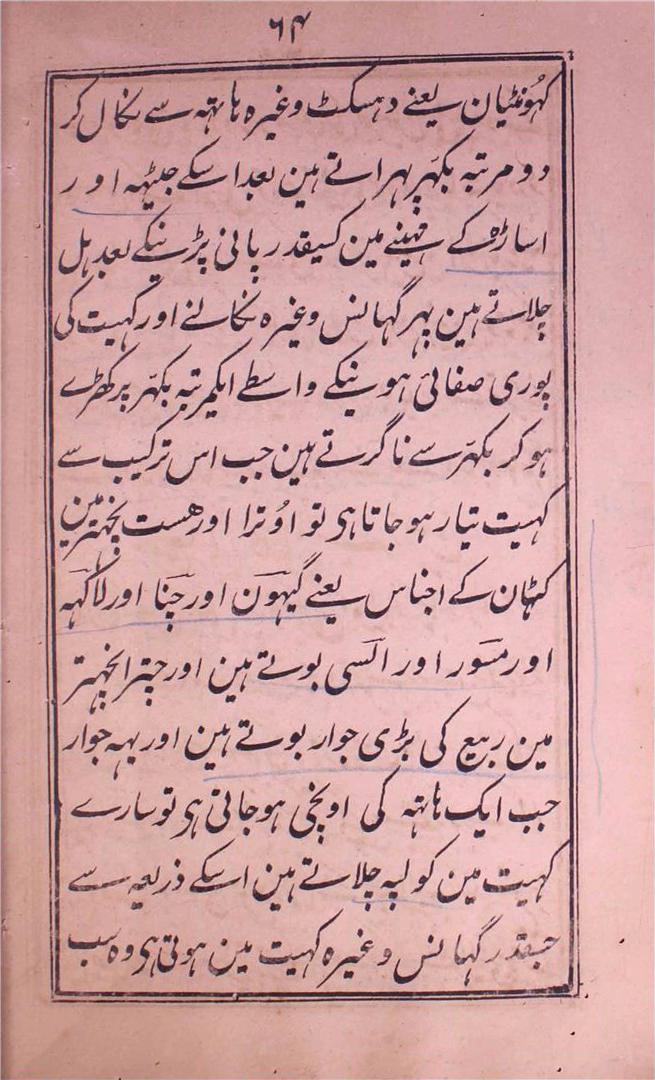 ۶۴
کہونٹیان یعنے دہسکٹ وغیرہ ہاتہہ سے نکال کر
دو مرتبہ بکہر پہراتے ہین بعد اسکے جیٹہہ اور
اساڑہ کے مہینے مین کسیقدر پانی پڑنیکے بعد ہل
چلاتے ہین پہر گہانس وغیرہ نکالنے اور کہیت کی
پوری صفائی ہونیکے واسطے ایکمرتبہ بکہر پر کھڑے
ہو کر بکہر سے ناگرتے ہین جب اس ترکیب سے
کہیت تیار ہو جاتا ہی تو اوترا اور ہست نچہتر مین
کٹہان کے اجناس یعنے گیہون اور چنا اور لاکہہ
اور مسور اور السی بوتے ہین اور چترا نچہتر
مین ربیع کی بڑی جوار بوتے ہین اور یہہ جوار
جب ایک ہاتہہ کی اونچی ہو جاتی ہی تو سارے
کہیت مین کولپہ چلاتے ہین اسکے ذریعہ سے
جسقدر گہانس وغیرہ کہیت مین ہوتی ہی وہ سب